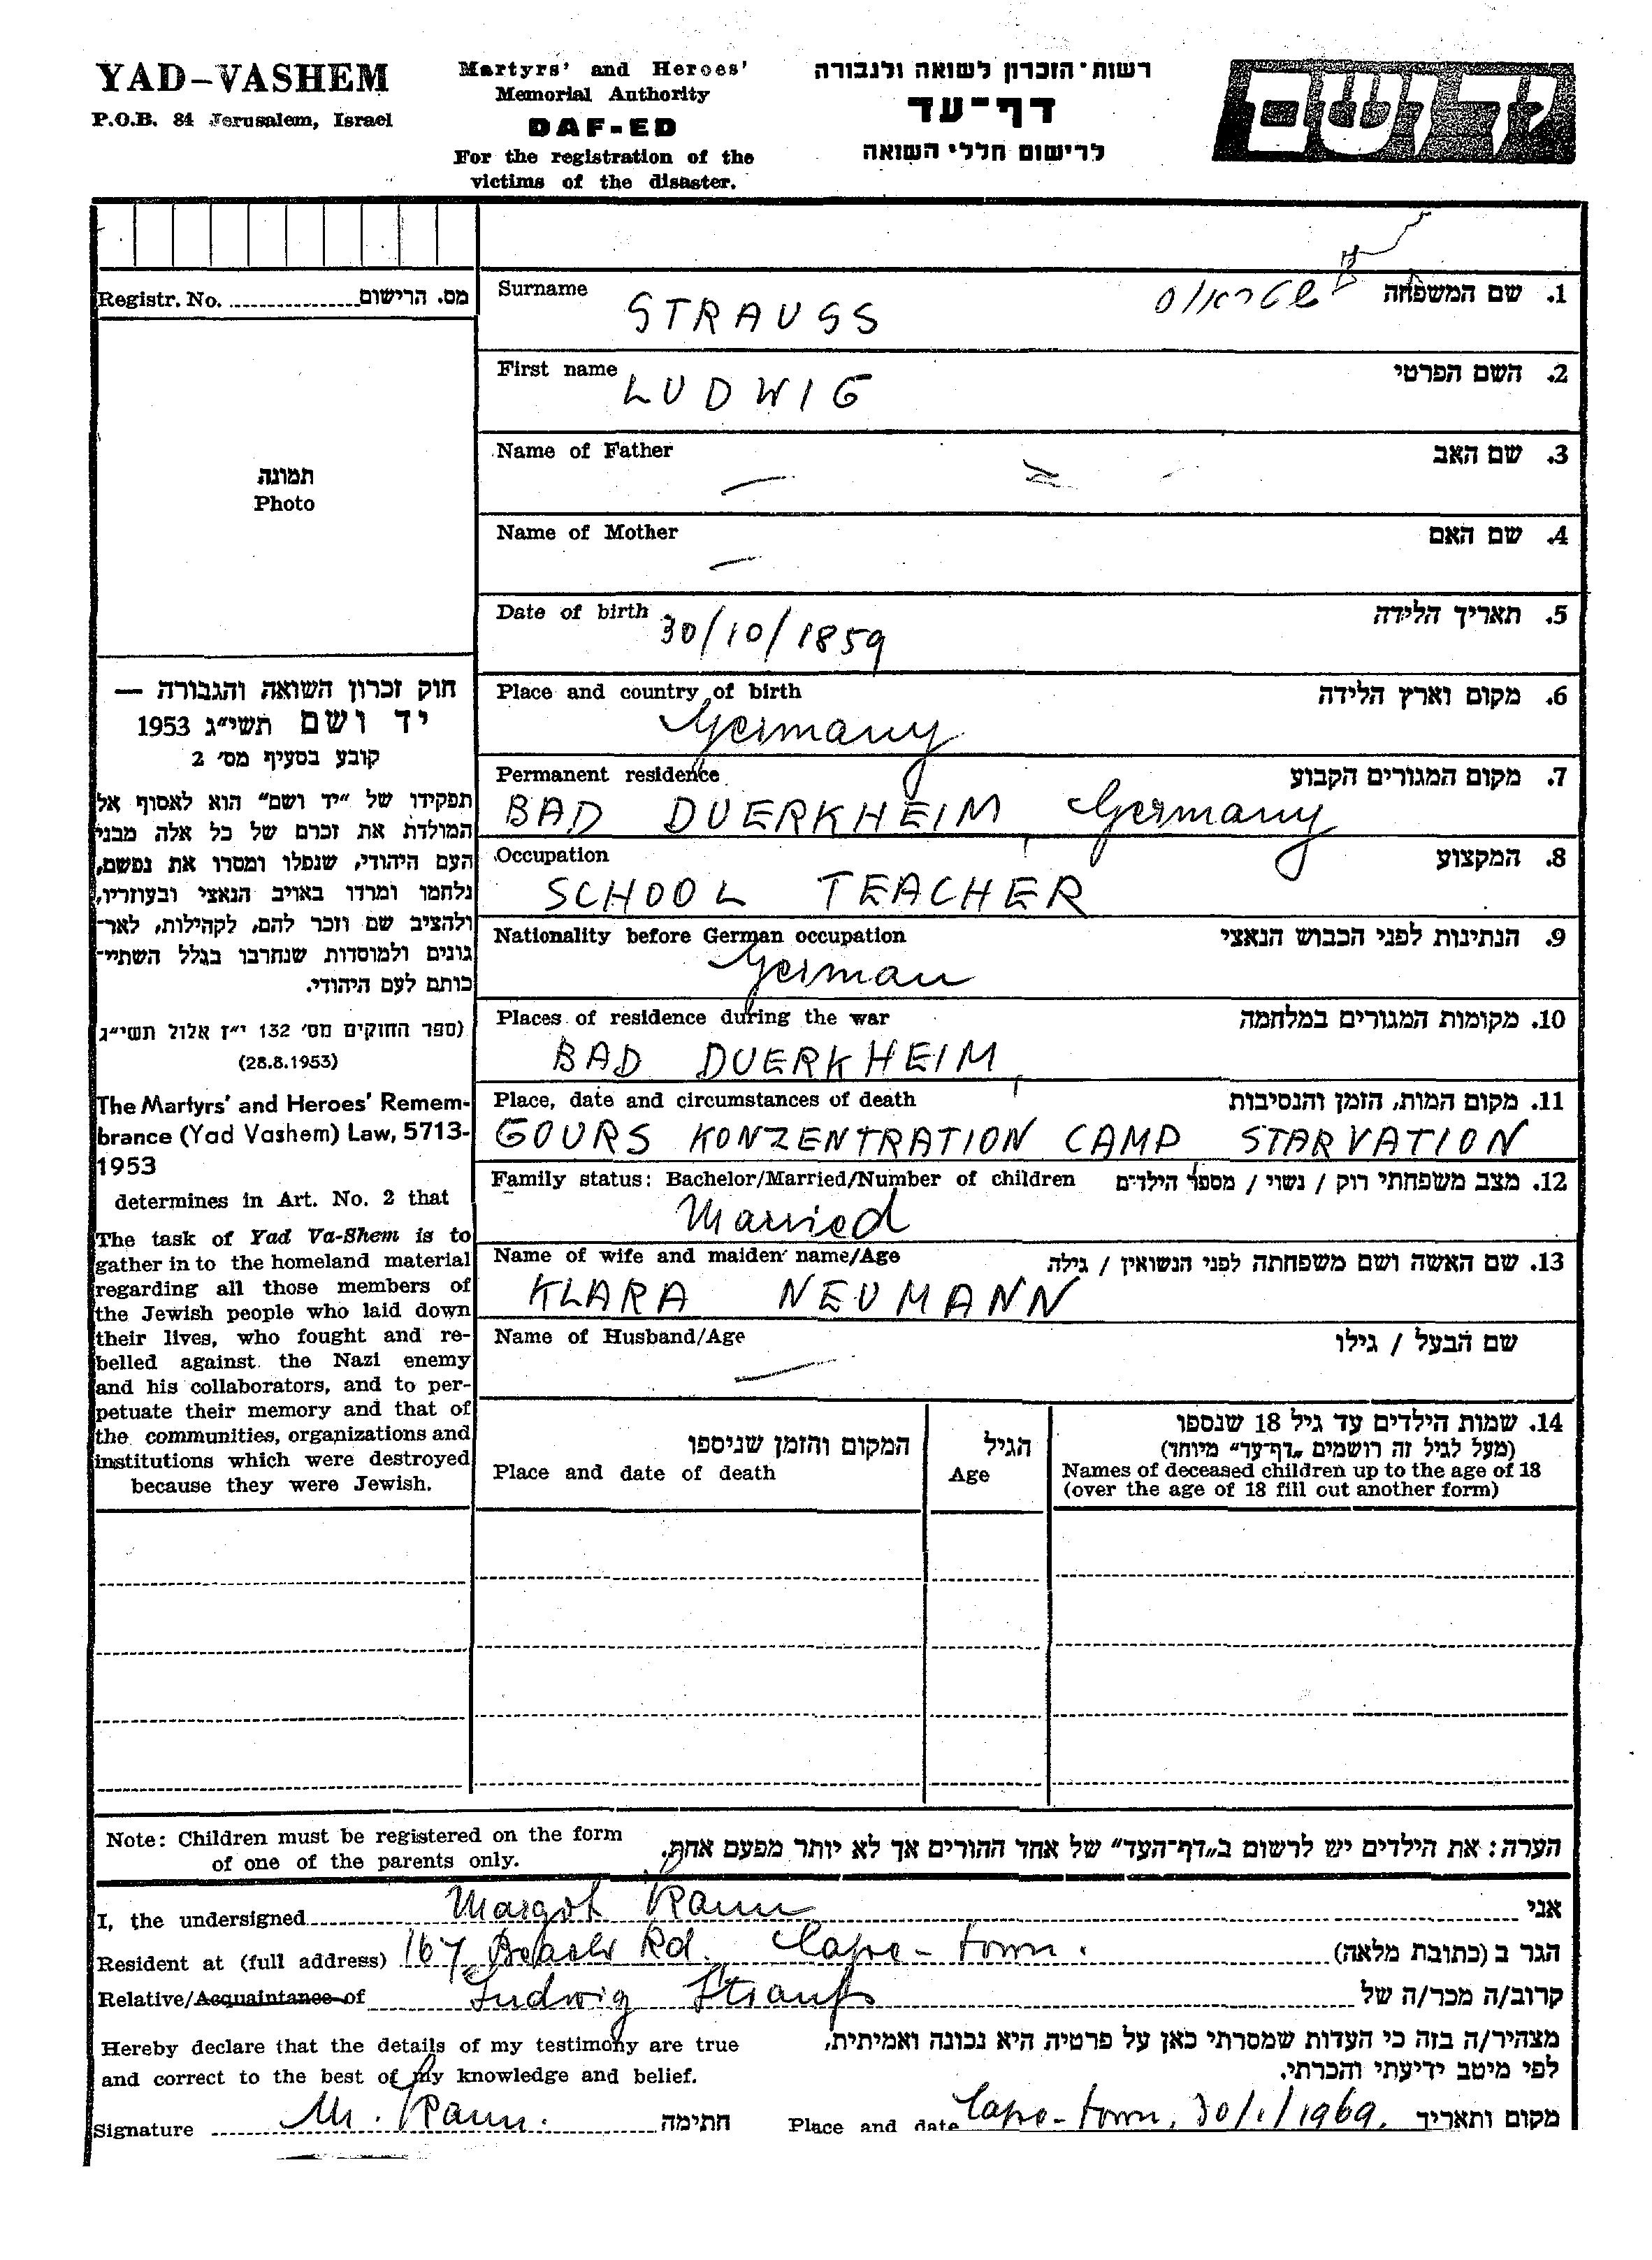 YAD-VASHEM
P.O.B. 84 Jerusalem, Israel
Martyrs' and Heroes'
Memorial Authority
DAF-ED
For the registration of the
victims of the disaster.
רשות-הזכרון לשואה ולגבורה
דף-עד
לרישום חללי השואה
יד ושם
Registr. No. מס. הרישום
תמונה
Photo
חוק זכרון השואה והגבורה —
יד ושם תשי״ג 1953
קובע בסעיף מס׳ 2
תפקידו של ״יד ושם״ הוא לאסוף אל
המולדת את זכרם של כל אלה מבני
העם היהודי, שנפלו ומסרו את נפשם,
נלחמו ומרדו באויב הנאצי ובעוזריו,
ולהציב שם וזכר להם, לקהילות, לאר-
גונים ולמוסדות שנחרבו בגלל השתיי-
כותם לעם היהודי.
(ספר החוקים מס׳ 132 י״ז אלול תשי״ג
(28.8.1953)
The Martyrs' and Heroes' Remem-
brance (Yad Vashem) Law, 5713-
1953
determines in Art. No. 2 that
The task of Yad Va-Shem is to
gather in to the homeland material
regarding all those members of
the Jewish people who laid down
their lives, who fought and re-
belled against the Nazi enemy
and his collaborators, and to per-
petuate their memory and that of
the communities, organizations and
institutions which were destroyed
because they were Jewish.
Surname 1. שם המשפחה
STRAUSS שטראוס
First name 2. השם הפרטי
LUDWIG
Name of Father 3. שם האב
—
Name of Mother 4. שם האם
—
Date of birth 5. תאריך הלידה
30/10/1859
Place and country of birth 6. מקום וארץ הלידה
Germany
Permanent residence 7. מקום המגורים הקבוע
BAD DUERKHEIM, Germany
Occupation 8. המקצוע
SCHOOL TEACHER
Nationality before German occupation 9. הנתינות לפני הכבוש הנאצי
German
Places of residence during the war 10. מקומות המגורים במלחמה
BAD DUERKHEIM,
Place, date and circumstances of death 11. מקום המות, הזמן והנסיבות
GOURS KONZENTRATION CAMP STARVATION
Family status: Bachelor/Married/Number of children 12. מצב משפחתי רוק / נשוי / מספר הילדים
Married
Name of wife and maiden name/Age 13. שם האשה ושם משפחתה לפני הנשואין / גילה
KLARA NEUMANN
Name of Husband/Age שם הבעל / גילו
—
14. שמות הילדים עד גיל 18 שנספו
(מעל לגיל זה רושמים ״דף-עד״ מיוחד)
Names of deceased children up to the age of 18
(over the age of 18 fill out another form)
הגיל
Age
המקום והזמן שניספו
Place and date of death
Note: Children must be registered on the form
of one of the parents only.
הערה: את הילדים יש לרשום ב״דף-העד״ של אחד ההורים אך לא יותר מפעם אחת.
I, the undersigned Margot אני
Resident at (full address) 167 Beach Rd. Cape-town. הגר ב (כתובת מלאה)
Relative/Acquaintance of Ludwig Strauss קרוב/ה מכר/ה של
Hereby declare that the details of my testimony are true
and correct to the best of my knowledge and belief.
מצהיר/ה בזה כי העדות שמסרתי כאן על פרטיה היא נכונה ואמיתית,
לפי מיטב ידיעתי והכרתי.
Signature M. חתימה
Place and date Cape-town, 30/1/1969. מקום ותאריך